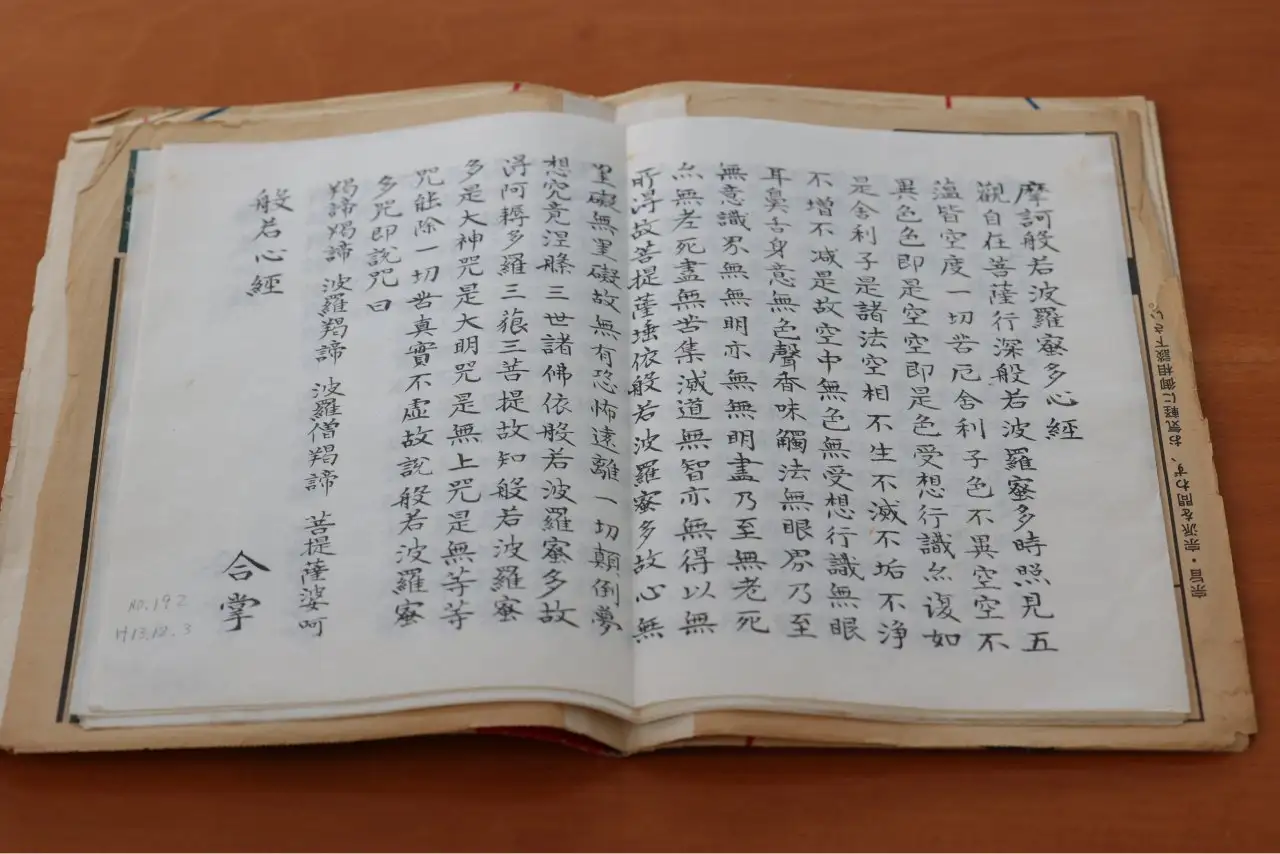 摩訶般若波羅蜜多心經
觀自在菩薩行深般若波羅蜜多時照見五
薀皆空度一切苦厄舎利子色不異空空不
異色色即是空空即是色受想行識亦復如
是舎利子是諸法空相不生不滅不垢不浄
不増不減是故空中無色無受想行識無眼
耳鼻舌身意無色聲香味觸法無眼界乃至
無意識界無無明亦無無明盡乃至無老死
亦無老死盡無苦集滅道無智亦無得以無
所得故菩提薩埵依般若波羅蜜多故心無
罣礙無罣礙故無有恐怖遠離一切顛倒夢
想究竟涅槃三世諸佛依般若波羅蜜多故
得阿耨多羅三藐三菩提故知般若波羅蜜
多是大神咒是大明咒是無上咒是無等等
咒能除一切苦真實不虚故說般若波羅蜜
多咒即說咒曰
羯諦羯諦 波羅羯諦 波羅僧羯諦 菩提薩婆呵
般若心經
合掌
NO.192
H13.12.3
宗旨・宗派を問わず、お気軽に御相談下さい。